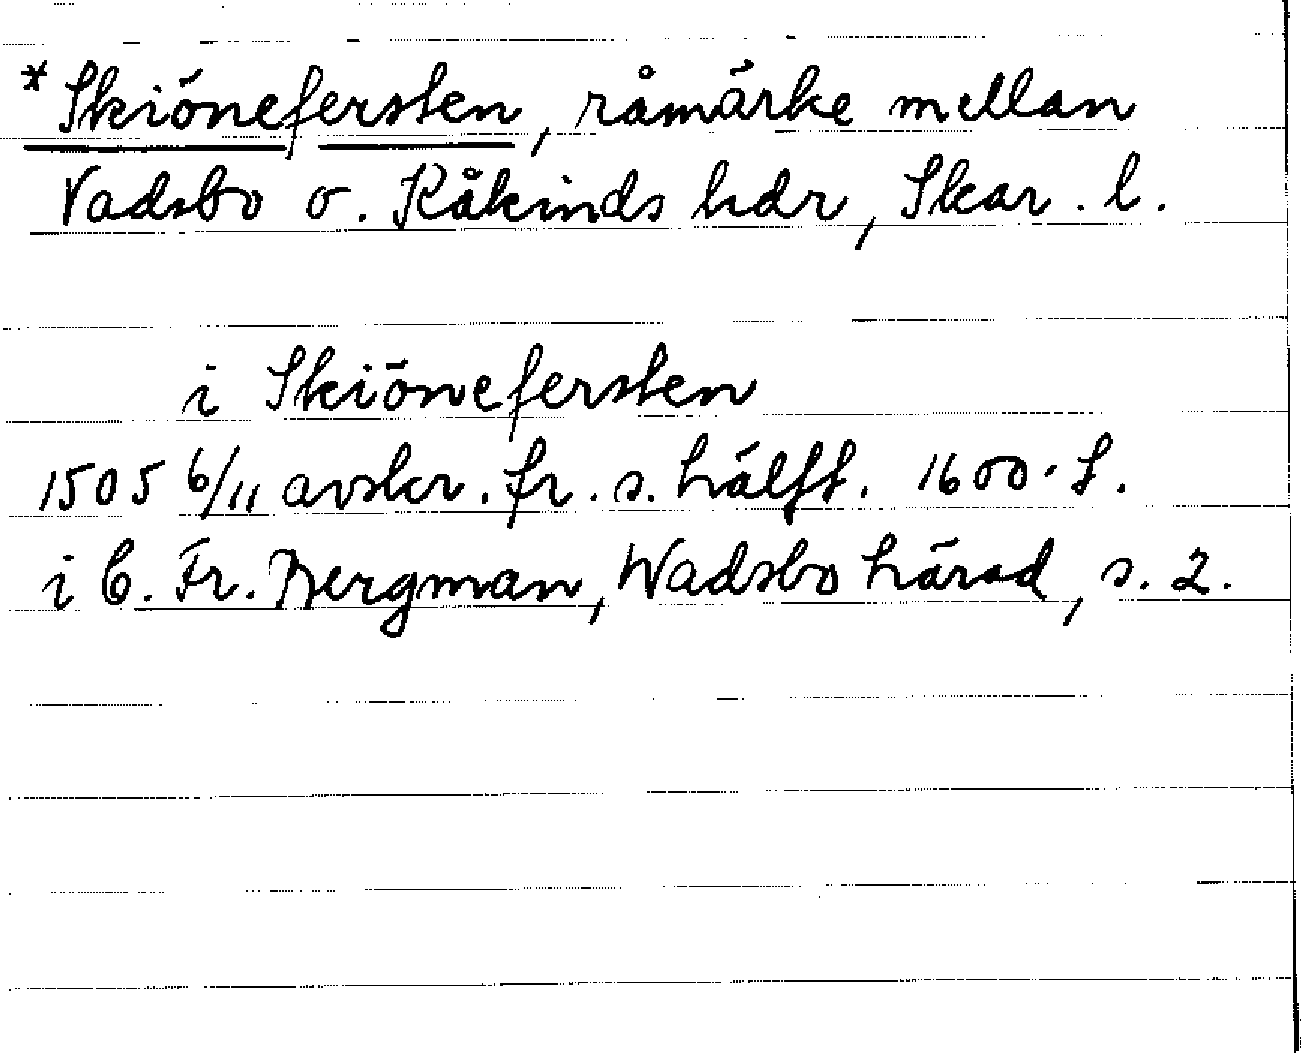 *Skiönefersten, råmärke mellan
Vadsbo o. Kåkinds hdr, Skar. l.
i Skiönefersten
1505 6/11 avskr. fr. s. hälft. 1600-t.
i C. Fr. Bergman, Wadsbo härad, s. 2.